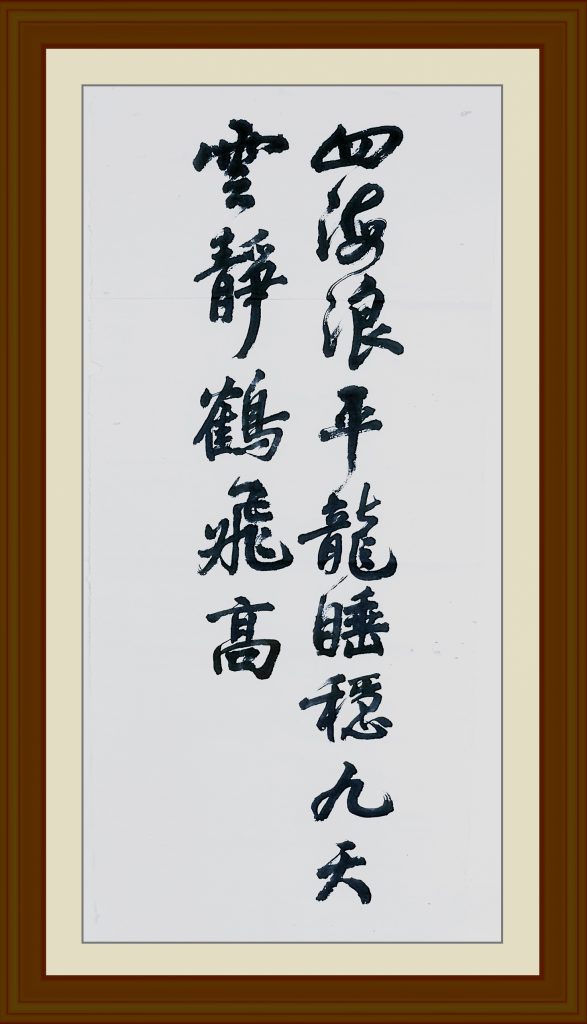 四海浪平龍睡穩九天
雲靜鶴飛高